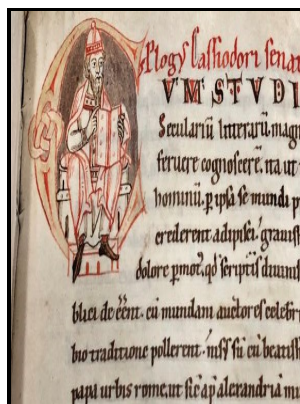 Plogꝰ Cassiodori senat
VM STVDI
Seculariū litterarū magn
fervere cognoscerē. ita ut
hominū. p ipsa se mundi p
crederent adipisci. gravis
dolore pmot. qđ scriptis divinis
blici de eēnt. cū mundani auctores celebri
bio traditione pollerent. niss sū cū beatiss
papa urbis rome. ut sic ap alexandriā mu